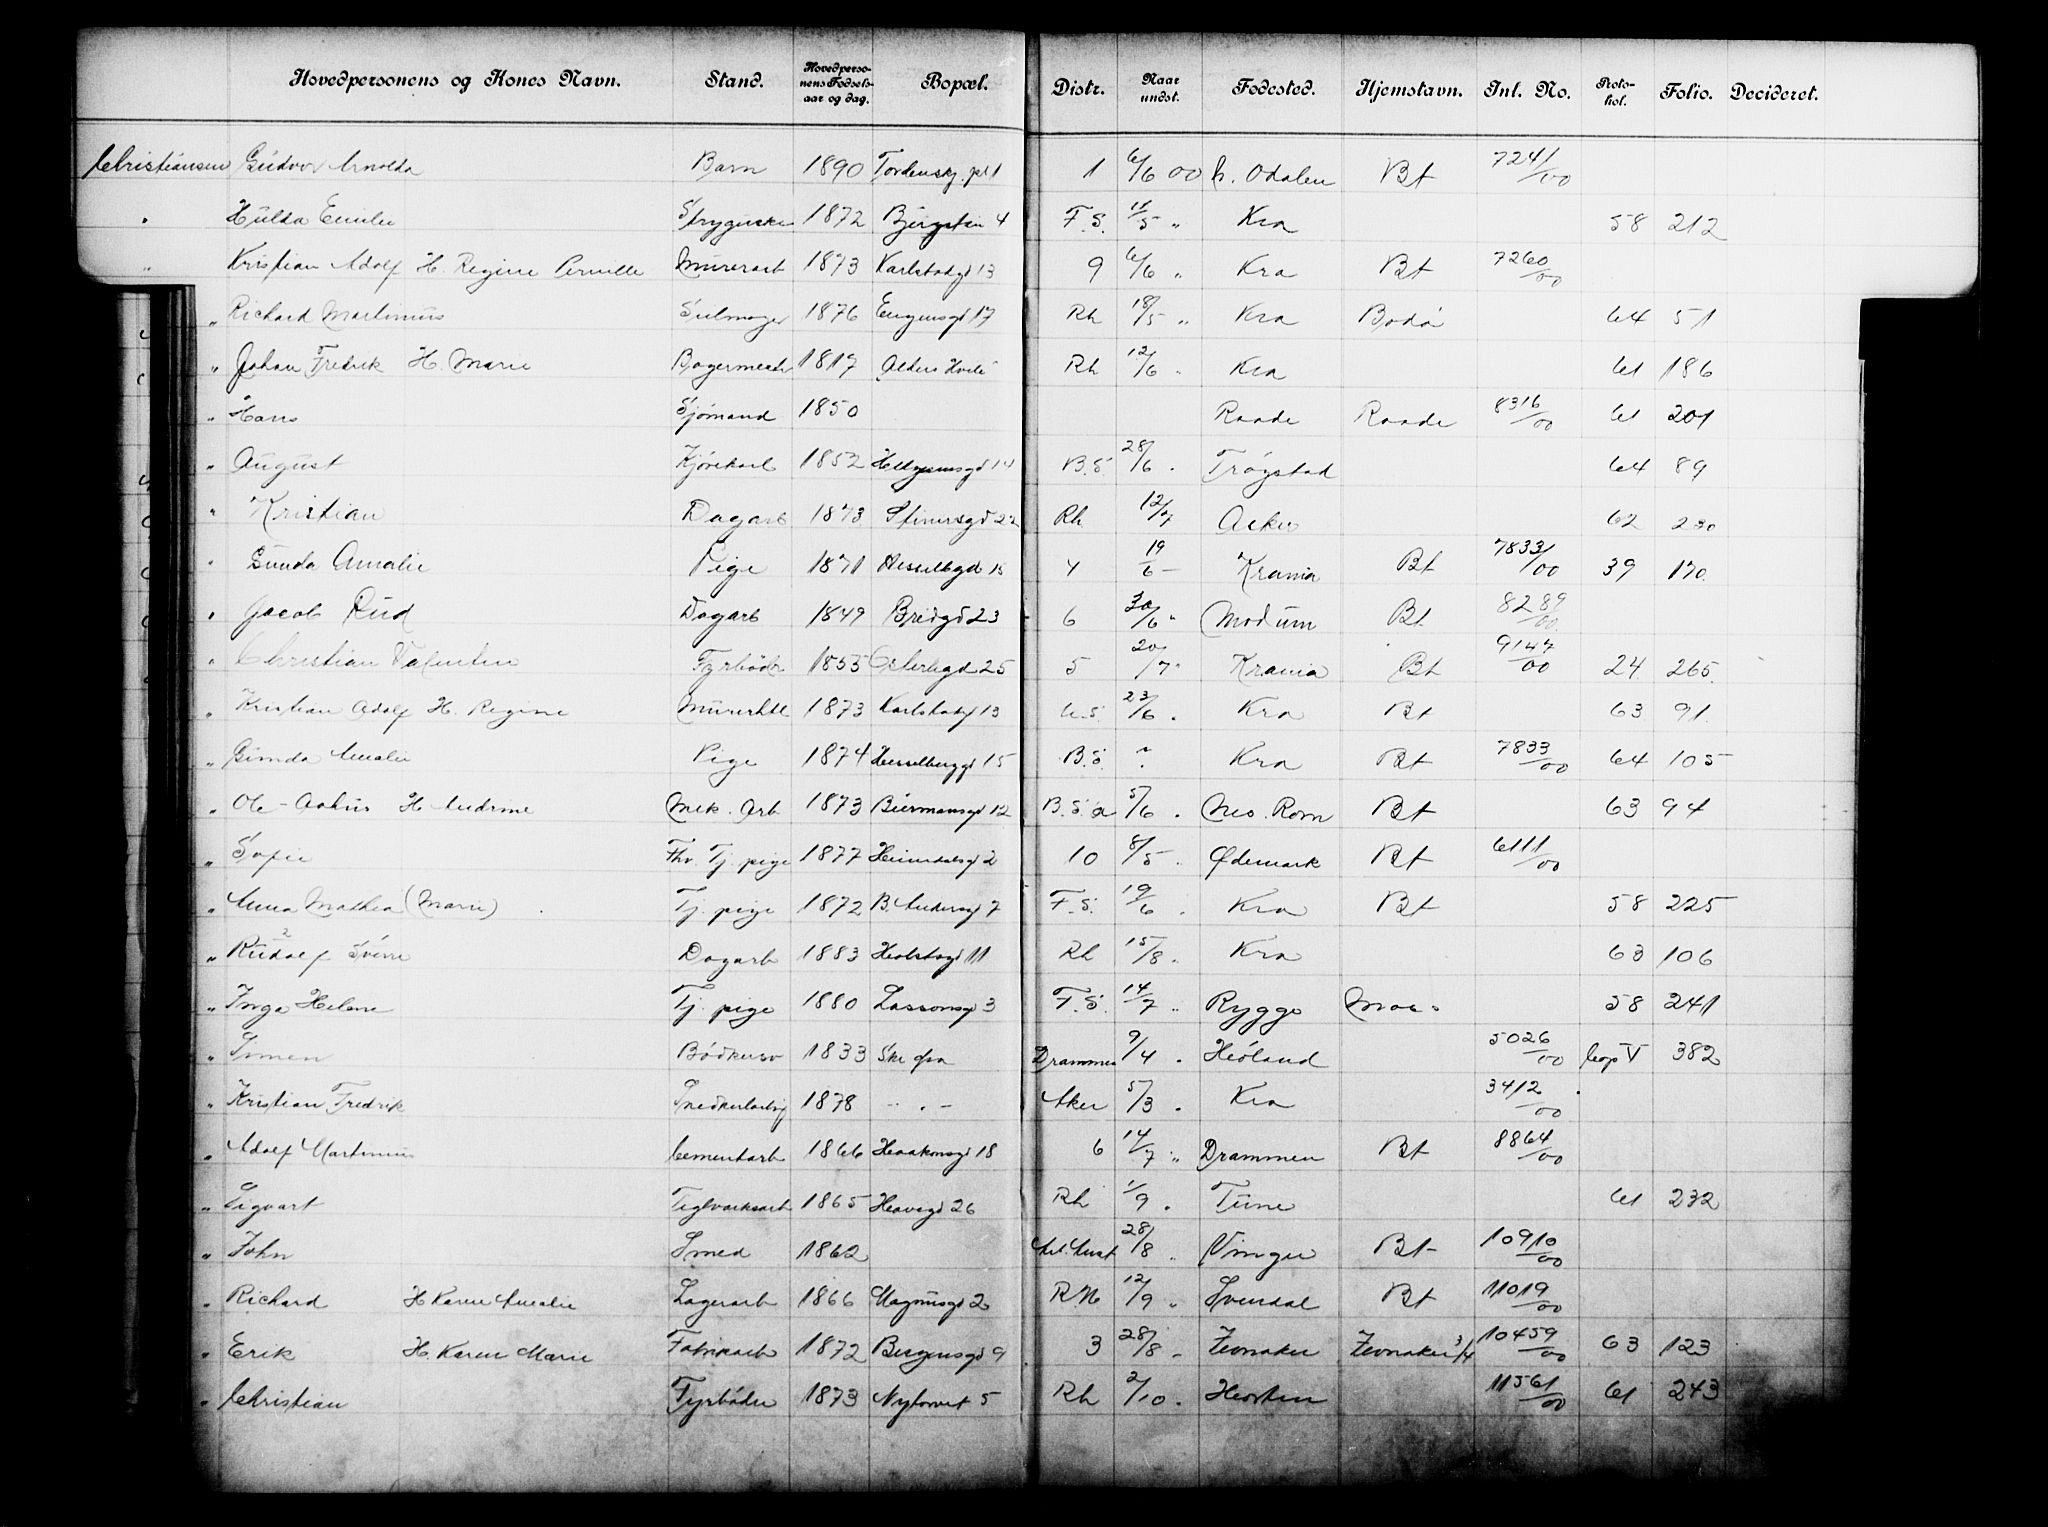 Hovedpersonens og Kones Navn. Stand. Hovedpersonens Fødselsaar og dag. Bopæl. Distr. Naar undst. Fødested. Hjemstavn. Int. No. Protokol. Folio. Decideret.
Christiansen Gudvor Arnolda Barn 1890 Tordenskj. pl 1 1 6/6 00 S. Odalen Bt 7241/00
" Hulda Emilie Strygerske 1872 Bjergstien 4 F.S. 11/5 " Kra 58 212
" Kristian Adolf H. Regine Pernille Murerarb 1873 Karlstadgd 13 9 6/6 " Kra Bt 7260/00
" Richard Martinius Seilmager 1876 Eugensgd 17 Rh 18/5 " Kra Bodø 64 51
" Johan Fredrik H. Marie Bagermester 1817 Alders Hvile Rh 12/6 " Kra 61 186
" Hans Sjømand 1850 Raade Raade 8316/00 61 201
" August Kjørekarl 1852 Helgesensgd 14 B.S. 28/6 " Trøgstad 64 89
" Kristian Dagarb 1873 Stenersgd 22 Rh 12/7 Aker 62 230
" Gunda Amalie Pige 1871 Hesselbgd 15 4 19/6 - Krania Bt 7833/00 39 170
" Jacob Rud Dagarb 1849 Bredgd 23 6 30/6 " Modum Bt 8289/00
" Christian Valentin Fyrbøder 1855 Osterhgd 25 5 20/7 " Krania Bt 9147/00 24 265
" Kristian Adolf H. Regine Murerhdl 1873 Karlstadgd 13 U.S. 23/6 . Kra Bt 63 91
" Gunda Amalie Pige 1874 Hesselberggd 15 B.S. " Kra Bt 7833/00 64 105
" Ole - Aahus H. Andrine Mek. Arb 1873 Biermansgd 12 B.S.a 5/6 . Nes. Rom Bt 63 94
" Sofie Fhv. Tj. pige 1877 Heimdalsgd 2 10 8/5 . Ødemark Bt 6111/00
" Anna Mathea (Marie) Tj. pige 1872 B. Ankersgd 7 F.S. 19/6 . Kra Bt 58 225
" Rudolf Sverre Dagarb 1883 Holstsgd 11 Rh 15/8 . Kra 63 106
" Inga Helene Tj. pige 1880 Lassonsgd 3 F.S. 14/7 " Rygge Mos- 58 241
" Simen Bødkersv 1833 Drammen 9/4 . Høland 5026/00 Cop V 382
" Kristian Fredrik Snedkerlærling 1878 - " - Aker 5/3 . Kra 3412/00
" Adolf Martinius Cementarb 1866 Haakonsgd 18 6 14/7 " Drammen Bt 8864/00
" Sigvart Teglværksarb 1865 Havsgd 26 Rh 1/9 . Tune 61 232
" John Smed 1862 28/8 " Vinger Bt 10910/00
" Richard H Karen Amalie Lagerarb 1866 Magnusgd 2 R.N 12/9 " Svendal Bt 11019/00
" Erik H. Karen Marie Fabrikarb 1872 Bergensgd 9 3 28/8 " Ževnaker Ževnaker 3/4 10459/00 63 123
" Christian Fyrbøder 1873 Nytorvet 5 Rh 2/10 . Horten 11561/00 61 243